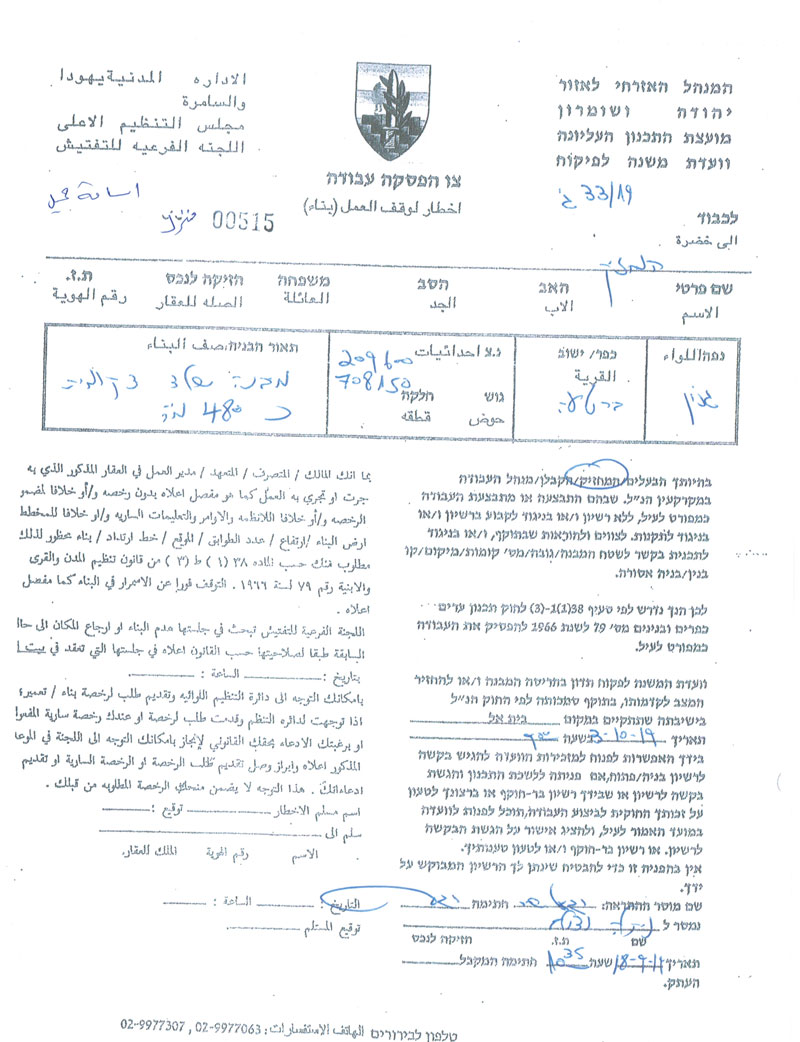 המנהל האזרחי לאזור
יהודה ושומרון
מועצת התכנון העליונה
וועדת משנה לפיקוח
الاداره المدنية يهودا
والسامرة
مجلس التنظيم الاعلى
اللجنه الفرعيه للتفتيش
צו הפסקה עבודה
اخطار لوقف العمل (بناء)
00515
اسامة
33/19
לכבוד
الى حضرة
שם פרטי האב הסב משפחה חזיקה לנכס ת.ז.
الاسم الاب الجد العائلة الصله للعقار رقم الهوية
נפה/اللواء
ג'נין
כפר/ישוב
القرية
ברטעה
נ.צ احداثيات
209600
708150
גוש חלקה
حوض قطعه
תאור הבניה/صف البناء
480
בהיותך הבעלים/המחזיק/הקבלן/מנהל העבודה
במקרקעין הנ"ל. שבהם התבצעה או מתבצעת העבודה
כמפורט לעיל, ללא רשיון ו/או בניגוד לקבוע ברשיון ו/או
בניגוד לתקנות. לצווים ולהוראות שבתוקף, ו/או בניגוד
לתכנית בקשר לשטח המבנה/גובה/מס' קומות/מיקום/קו
בנין/בניה אסורה.
לכן הנך נדרש לפי סעיף 38(1)-(3) לחוק תכנון ערים
כפרים ובנינים מס' 79 לשנת 1966 להפסיק את העבודה
כמפורט לעיל.
וועדת המשנה לפקוח תדון בהריסת המבנה ו/או להחזיר
המצב לקדמותו, בתוקף סמכותה לפי החוק הנ"ל
בישיבתה שתתקיים במקום בית אל
תאריך 3-10-19 בשעה
בידך האפשרות לפנות למזכירות הוועדה להגיש בקשה
לרשיון בניה/פתוח, אם פניתה ללשכת התכנון והגשת
בקשה לרשיון או שבידך רשיון בר-תוקף או ברצונך לטעון
על זכותך החוקית לביצוע העבודה, תוכל לפנות לוועדה
במועד האמור לעיל, ולהציג אישור על הגשת הבקשה
לרשיון. או רשיון בר-תוקף ו/או לטעון טענותיך.
אין בהפניה זו כדי להבטיח שינתן לך הרשיון המבוקש על
ידך.
שם מוסר ההתראה: חתימה
נמסר ל
שם ת.ז. חזיקה לנכס
תאריך 18-9-19 שעה 10 35 חתימה המקבל
העתק.
بما انك المالك / المتصرف / المتعهد / مدير العمل في العقار المذكور الذي به
جرت او تجري به العمل كما هو مفصل اعلاه بدون رخصه و/أو خلافا لمضمون
الرخصه و/أو خلافا للانظمه والاوامر والتعليمات الساريه و/او خلافا للمخطط
ارض البناء / ارتفاع / عدد الطوابق / الموقع / خط ارتداد / بناء محظور لذلك
مطلوب منك حسب الماده ٣٨ (١) ط (٣) من قانون تنظيم المدن والقرى
والابنية رقم ٧٩ لسنة ١٩٦٦ . التوقف فورا عن الاسمرار في البناء كما مفصل
اعلاه .
اللجنة الفرعية للتفتيش تبحث في جلستها هدم البناء او ارجاع المكان الى حا
السابقة طبقا لصلاحيتها حسب القانون اعلاه في جلستها التي تعقد في بيت
بتاريخ: الساعة :
بامكانك التوجه الى دائرة التنظيم اللوائيه وتقديم طلب لرخصة بناء / تعمير
اذا توجهت لدائره التنظم وقدمت طلب لرخصة او عندك رخصة سارية المفعو
او برغبتك الادعاء بحقك القانوني لإنجاز بامكانك التوجه الى اللجنة في الموعا
المذكور اعلاه وإبراز وصل تقديم طلب الرخصة او الرخصة السارية او تقديم
ادعاءاتك . هذا التوجه لا يضمن منحك الرخصة المطلوبه من قبلك .
اسم مسلم الاخطار توقيع :
سلم الى
الاسم رقم الهوية الملك للعقار.
التاريخ : الساعة :
توقيع المستلم
טלפון לבירורים الهاتف الاستفسارات: 02-9977063 , 02-9977307